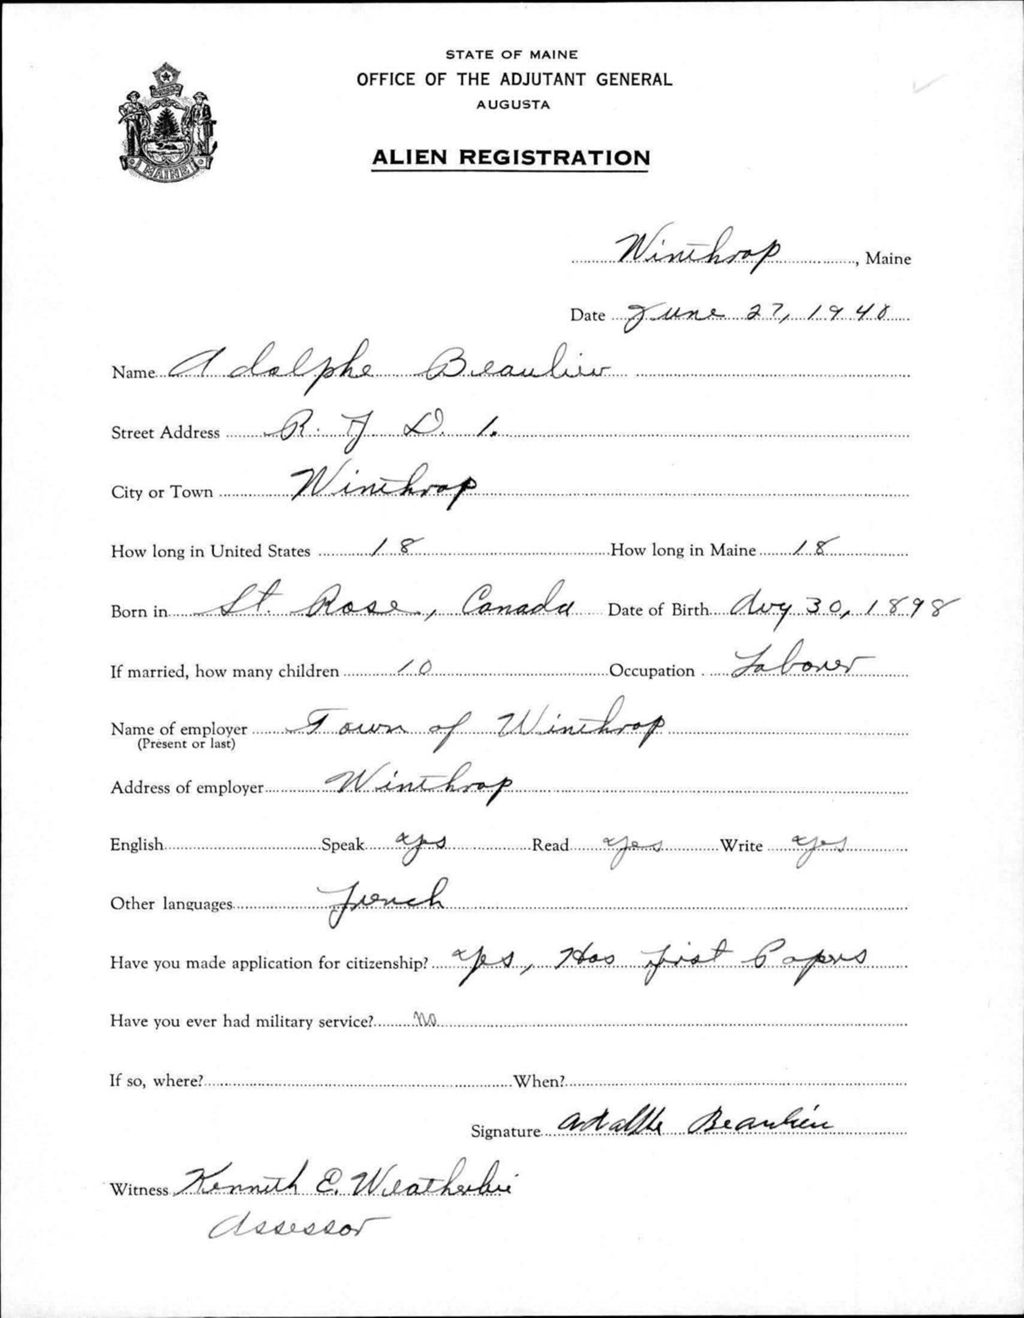 STATE OF MAINE
OFFICE OF THE ADJUTANT GENERAL
AUGUSTA
ALIEN REGISTRATION
MAINE
Winthrop, Maine
Date June 27, 1940
Name Adolphe Beaulieu
Street Address R. F. D. 1.
City or Town Winthrop
How long in United States 18 How long in Maine 18
Born in St. Rose, Canada Date of Birth Aug 30, 1898
If married, how many children 10 Occupation Laborer
Name of employer Town of Winthrop
(Present or last)
Address of employer Winthrop
English Speak yes Read yes Write yes
Other languages French
Have you made application for citizenship? yes, Has first Papers
Have you ever had military service? no
If so, where? When?
Signature Adolphe Beaulieu
Witness Kenneth E. Weatherbie
Assessor